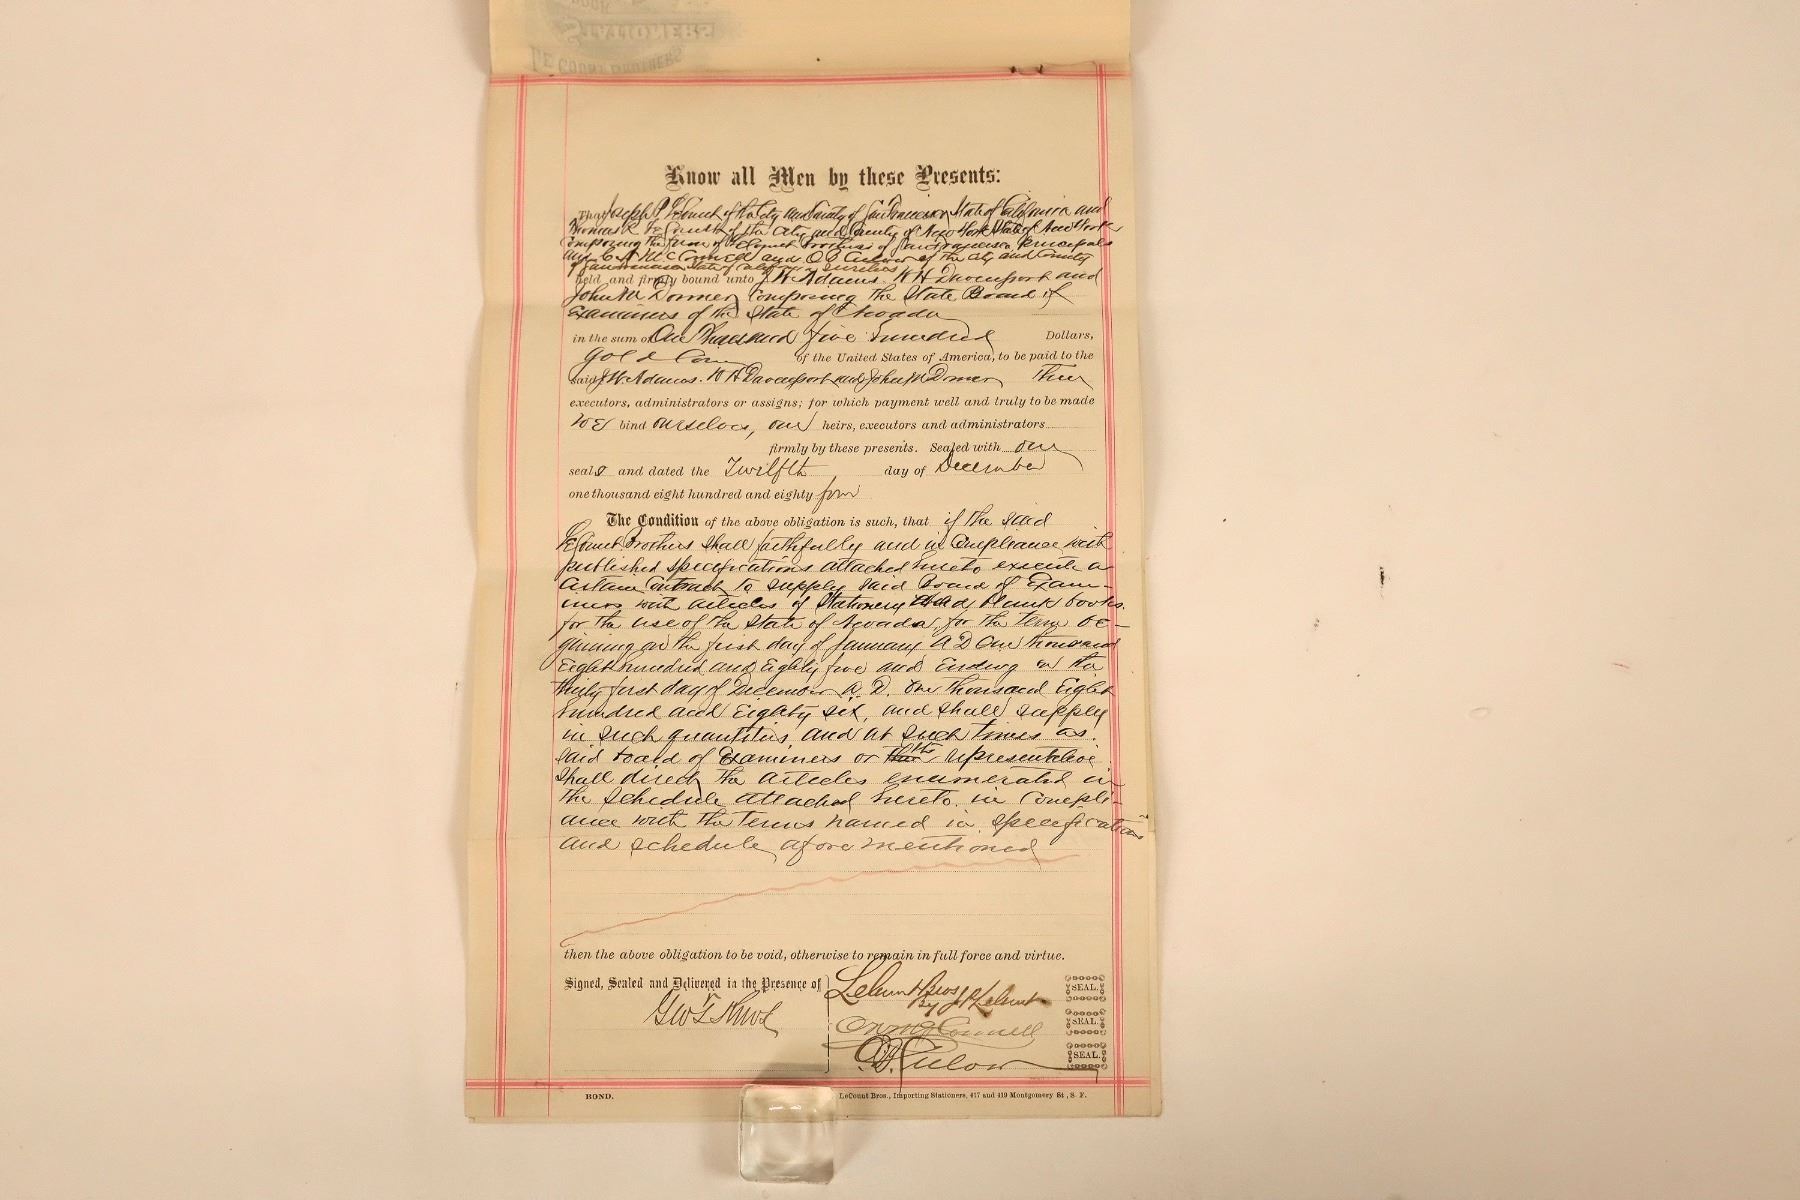 STATIONERS
LE COUNT BROTHERS
Know all Men by these Presents:
That Joseph P. LeCount of the City and County of San Francisco State of California and
Thomas R. Le Count of the City and County of New York State of New York
Composing the firm of LeCount Brothers of San Francisco, Principals
and McConnell and of the City and County
of San Francisco State of California sureties
held and firmly bound unto J W Adams. W H Davenport and
John M Dormer Composing the State Board of
Examiners of the State of Nevada
in the sum of One Thousand five Hundred Dollars,
gold Coin of the United States of America, to be paid to the
said J W Adams. W H Davenport and John M Dormer Their
executors, administrators or assigns; for which payment well and truly to be made
we bind ourselves, our heirs, executors and administrators
firmly by these presents. Sealed with our
seals and dated the Twelfth day of December
one thousand eight hundred and eighty four
The Condition of the above obligation is such, that if the said
LeCount Brothers shall faithfully and in Compliance with
published specifications attached hereto execute a
Certain Contract to supply said Board of Exam-
iners with articles of Stationery and blank books.
for the use of the State of Nevada, for the term be-
ginning on the first day of January A D One thousand
Eight hundred and Eighty five and Ending on the
thirty first day of December A. D. One thousand Eight
hundred and Eighty six, and shall supply
in such quantities and at such times as
said board of Examiners or their representative
shall direct the articles enumerated in
the schedule attached hereto. in Compli-
ance with the terms named in specifications
and schedule afore mentioned
then the above obligation to be void, otherwise to remain in full force and virtue.
Signed, Sealed and Delivered in the Presence of
LeCount Bros
By J P LeCount
SEAL.
McConnell
SEAL.
SEAL.
BOND.
LeCount Bros., Importing Stationers, 417 and 419 Montgomery St., S. F.